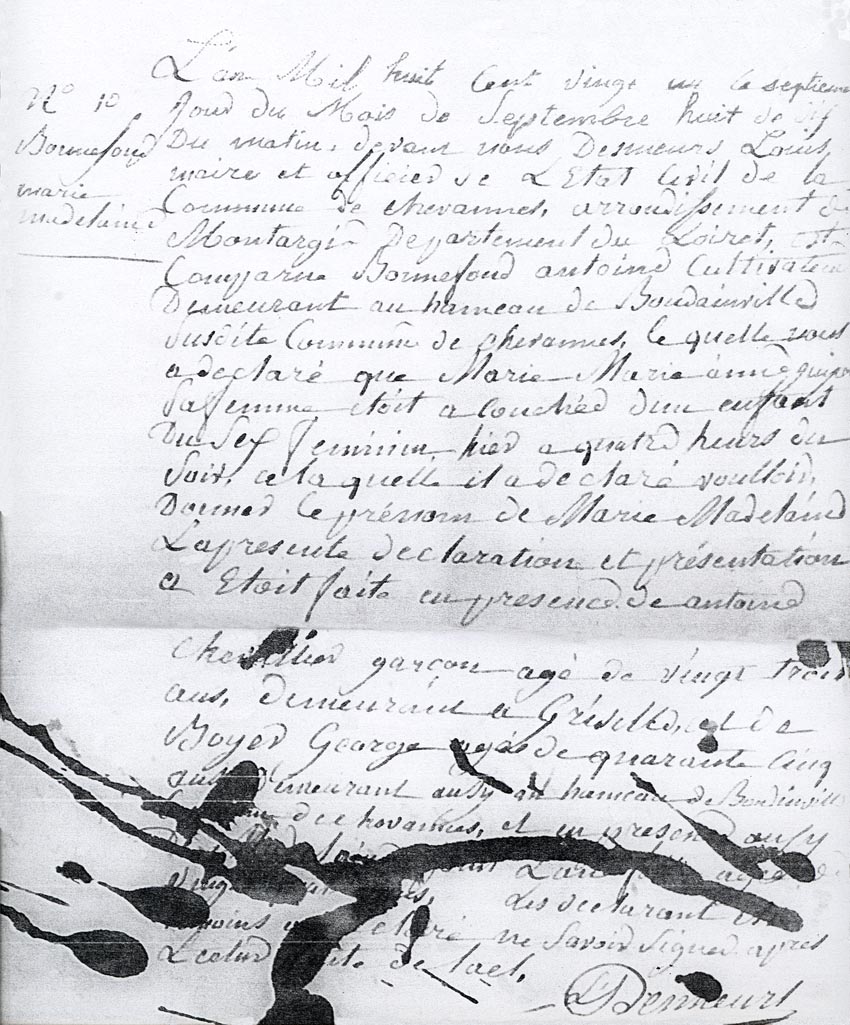 L'an Mil huit Cent vingt un le septieme
No 10
Jour du Mois de Septembre huit de
Bonnefond
Du matin, devant nous Desmeurs Louis,
maire et officier de L'Etat Civil de la
marie
Commune de chevannes, arrondissement de
madelaine
Montargis Departement du Loiret, est
Comparue Bonnefond antoine Cultivateur
Demeurant au hameau de Boudainville
Susdite Commune de chevannes, le quelle nous
a declaré que Marie Marie anne
Sa femme étoit a couchée d'un enfant
Du Sex feminin hier a quatre heurs du
Soir, a la quelle il a declaré voulloir,
Donner le prénom de Marie Madelaine
La presente declaration et présentation
a Etoit faite en presence de antoine
chevallier garçon agé de vingt trois
ans, demeurant a Griselle, et de
Boyer George agés de quarante Cinq
ans demeurant ausy au hameau de Boudinville
de chevannes, et en presence ausy
agée de
vingt Les declarant et
témoins declaré ne Savoir Signer après
Lecture faite de l'act,
L Demeurs